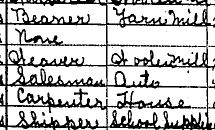 Beamer Yarn Mill
None
Weaver Woolen Mill
Salesman Auto
Carpenter House
Shipper School Supplies